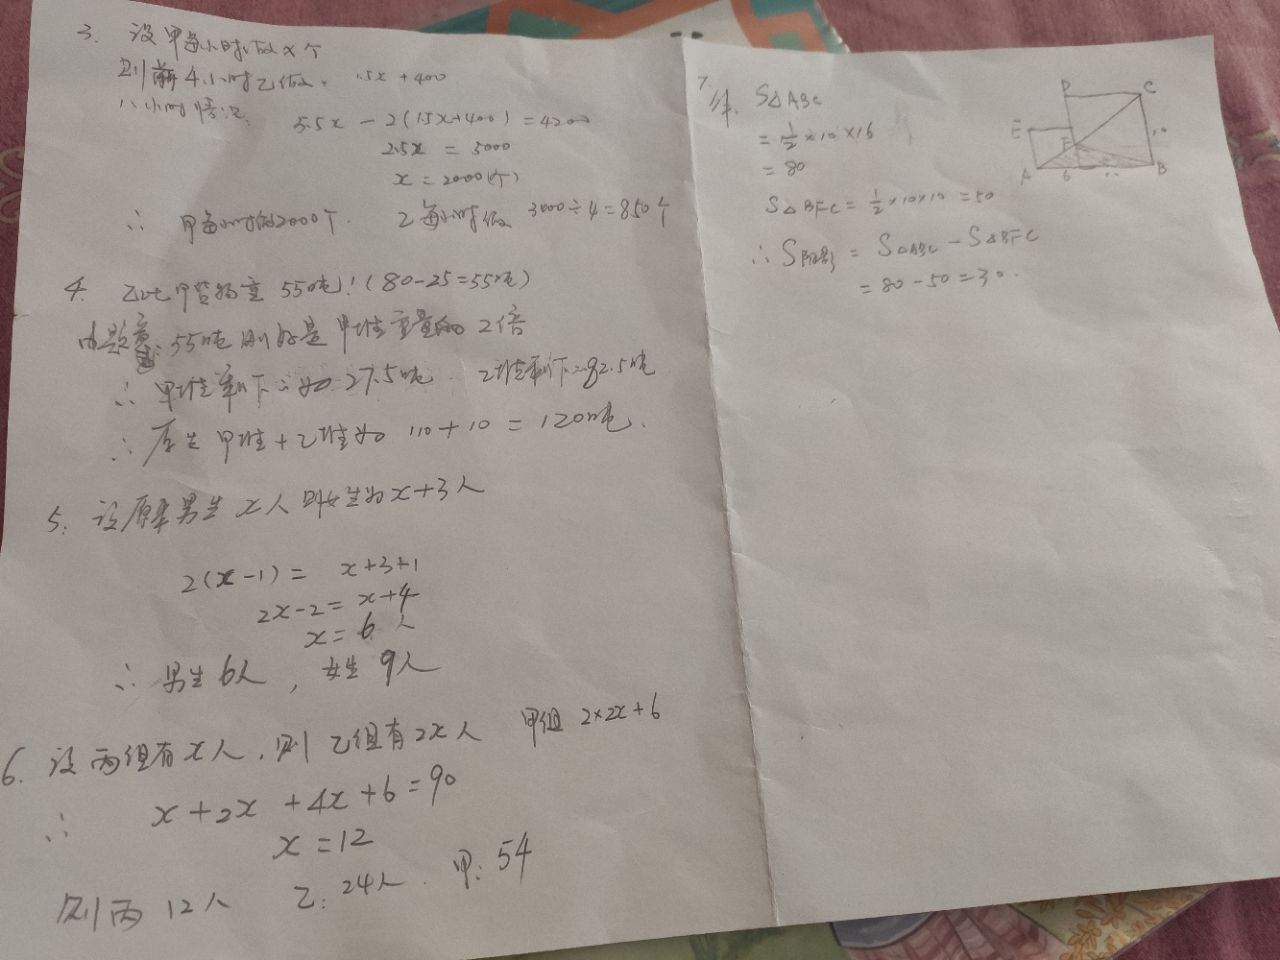 3. 设甲每小时做x个
则前4小时乙做: 1.5x + 400
八小时情况:
5.5x - 2(1.5x+400) = 4200
2.5x = 5000
x = 2000(个)
∴ 甲每小时做2000个. 乙每小时做 3000÷4=850个
4. 乙比甲货物重 55吨! (80-25=55吨)
由题意: 55吨刚好是甲堆重量的 2倍
∴ 甲堆剩下为 27.5吨. 乙堆剩下:82.5吨
∴ 原先 甲堆+乙堆为 110+10 = 120吨.
5. 设原来男生 x人 则女生为 x+3人
2(x-1) = x+3+1
2x-2 = x+4
x = 6 人
∴ 男生6人, 女生 9人
6. 设丙组有x人, 则 乙组有2x人 甲组 2×2x+6
∴ x+2x+4x+6=90
x=12
则丙 12人 乙: 24人. 甲: 54
7. 解. S△ABC
= 1/2 × 10 × 16
= 80
S△BFC = 1/2 × 10×10 = 50
∴ S阴影 = S△ABC - S△BFC
= 80-50=30.
D C
E
F 10
A 6 B